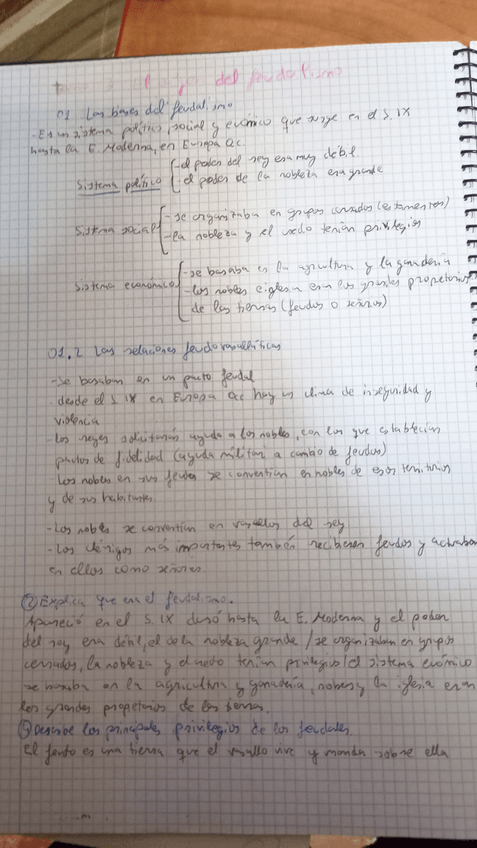 del feudalismo
01 Las bases del feudalismo
- Es un sistema político, social y económico que surge en el S. IX
hasta la E. Moderna, en Europa Oc.
Sistema político
- el poder del rey era muy débil
- el poder de la nobleza era grande
Sistema social
- se organizaba en grupos cerrados (estamentos)
- la nobleza y el tenían privilegios
Sistema económico
- se basaba en la agricultura y la ganadería
- los nobles e iglesia eran los grandes propietarios
de las tierras (feudos o señoríos)
01.2 Las relaciones feudovasalláticas
- Se basaban en un pacto feudal
- desde el S. IX en Europa Occ hay un clima de inseguridad y
violencia
- los reyes solicitarán ayuda a los nobles, con los que establecían
pactos de fidelidad (ayuda militar a cambio de feudos)
Los nobles en sus feudos se convertían en nobles de esos territorios
y de sus habitantes
- Los nobles se convertían en vasallos del rey
- Los clérigos más importantes también recibieron feudos y actuaban
en ellos como señores.
② Explica que era el feudalismo.
Apareció en el S. IX duró hasta la E. Moderna y el poder
del rey era débil, el de la nobleza grande / se organizaban en grupos
cerrados, la nobleza y el tenían privilegios / el sistema económico
se basaba en la agricultura y ganadería, nobles y la iglesia eran
los grandes propietarios de las tierras.
Describe los principales privilegios de los feudales
El feudo es una tierra que el vasallo vive y manda sobre ella